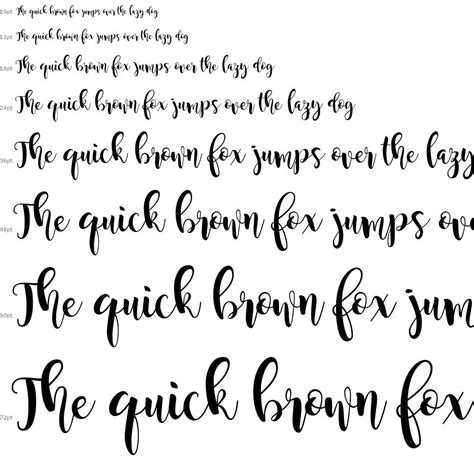 10pt The quick brown fox jumps over the lazy dog
12pt The quick brown fox jumps over the lazy dog
18pt The quick brown fox jumps over the lazy dog
24pt The quick brown fox jumps over the lazy dog
36pt The quick brown fox jumps over the lazy
48pt The quick brown fox jumps ov
60pt The quick brown fox jum
72pt The quick brown fox